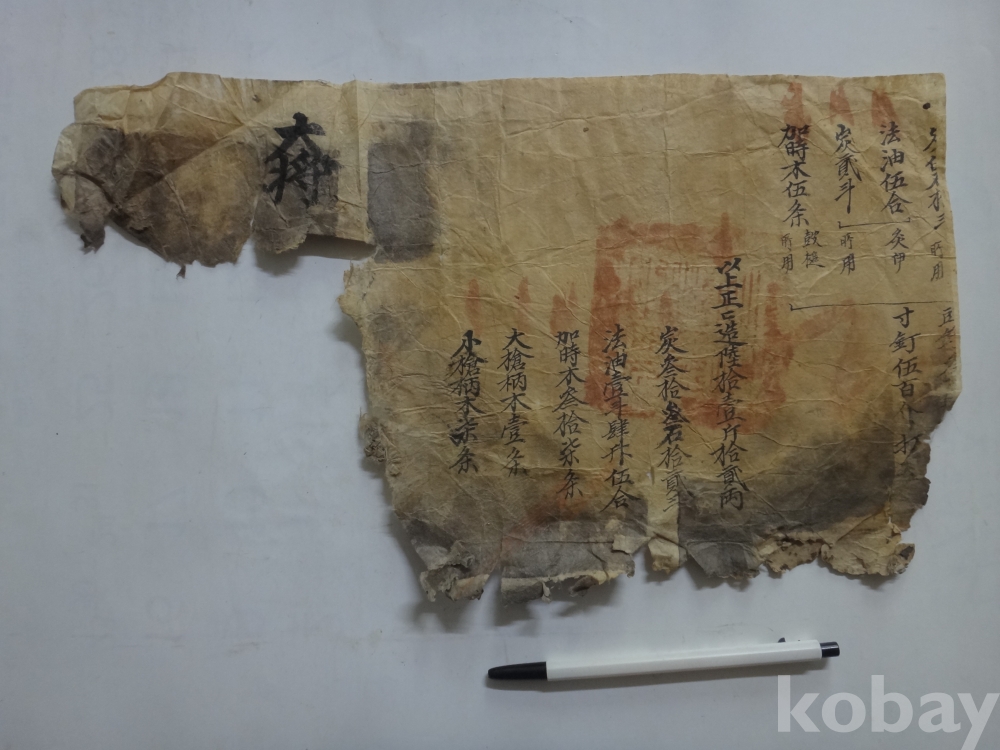 法油伍合 灸伊
炭貳斗 所用
加時木伍条 所用
寸釘伍百
以上正造陸拾壹斤拾貳兩
炭叁拾叁石拾貳斗
法油壹斗肆升伍合
加時木叁拾柒条
大槍柄木壹条
小槍柄木柒条
大將
kobay